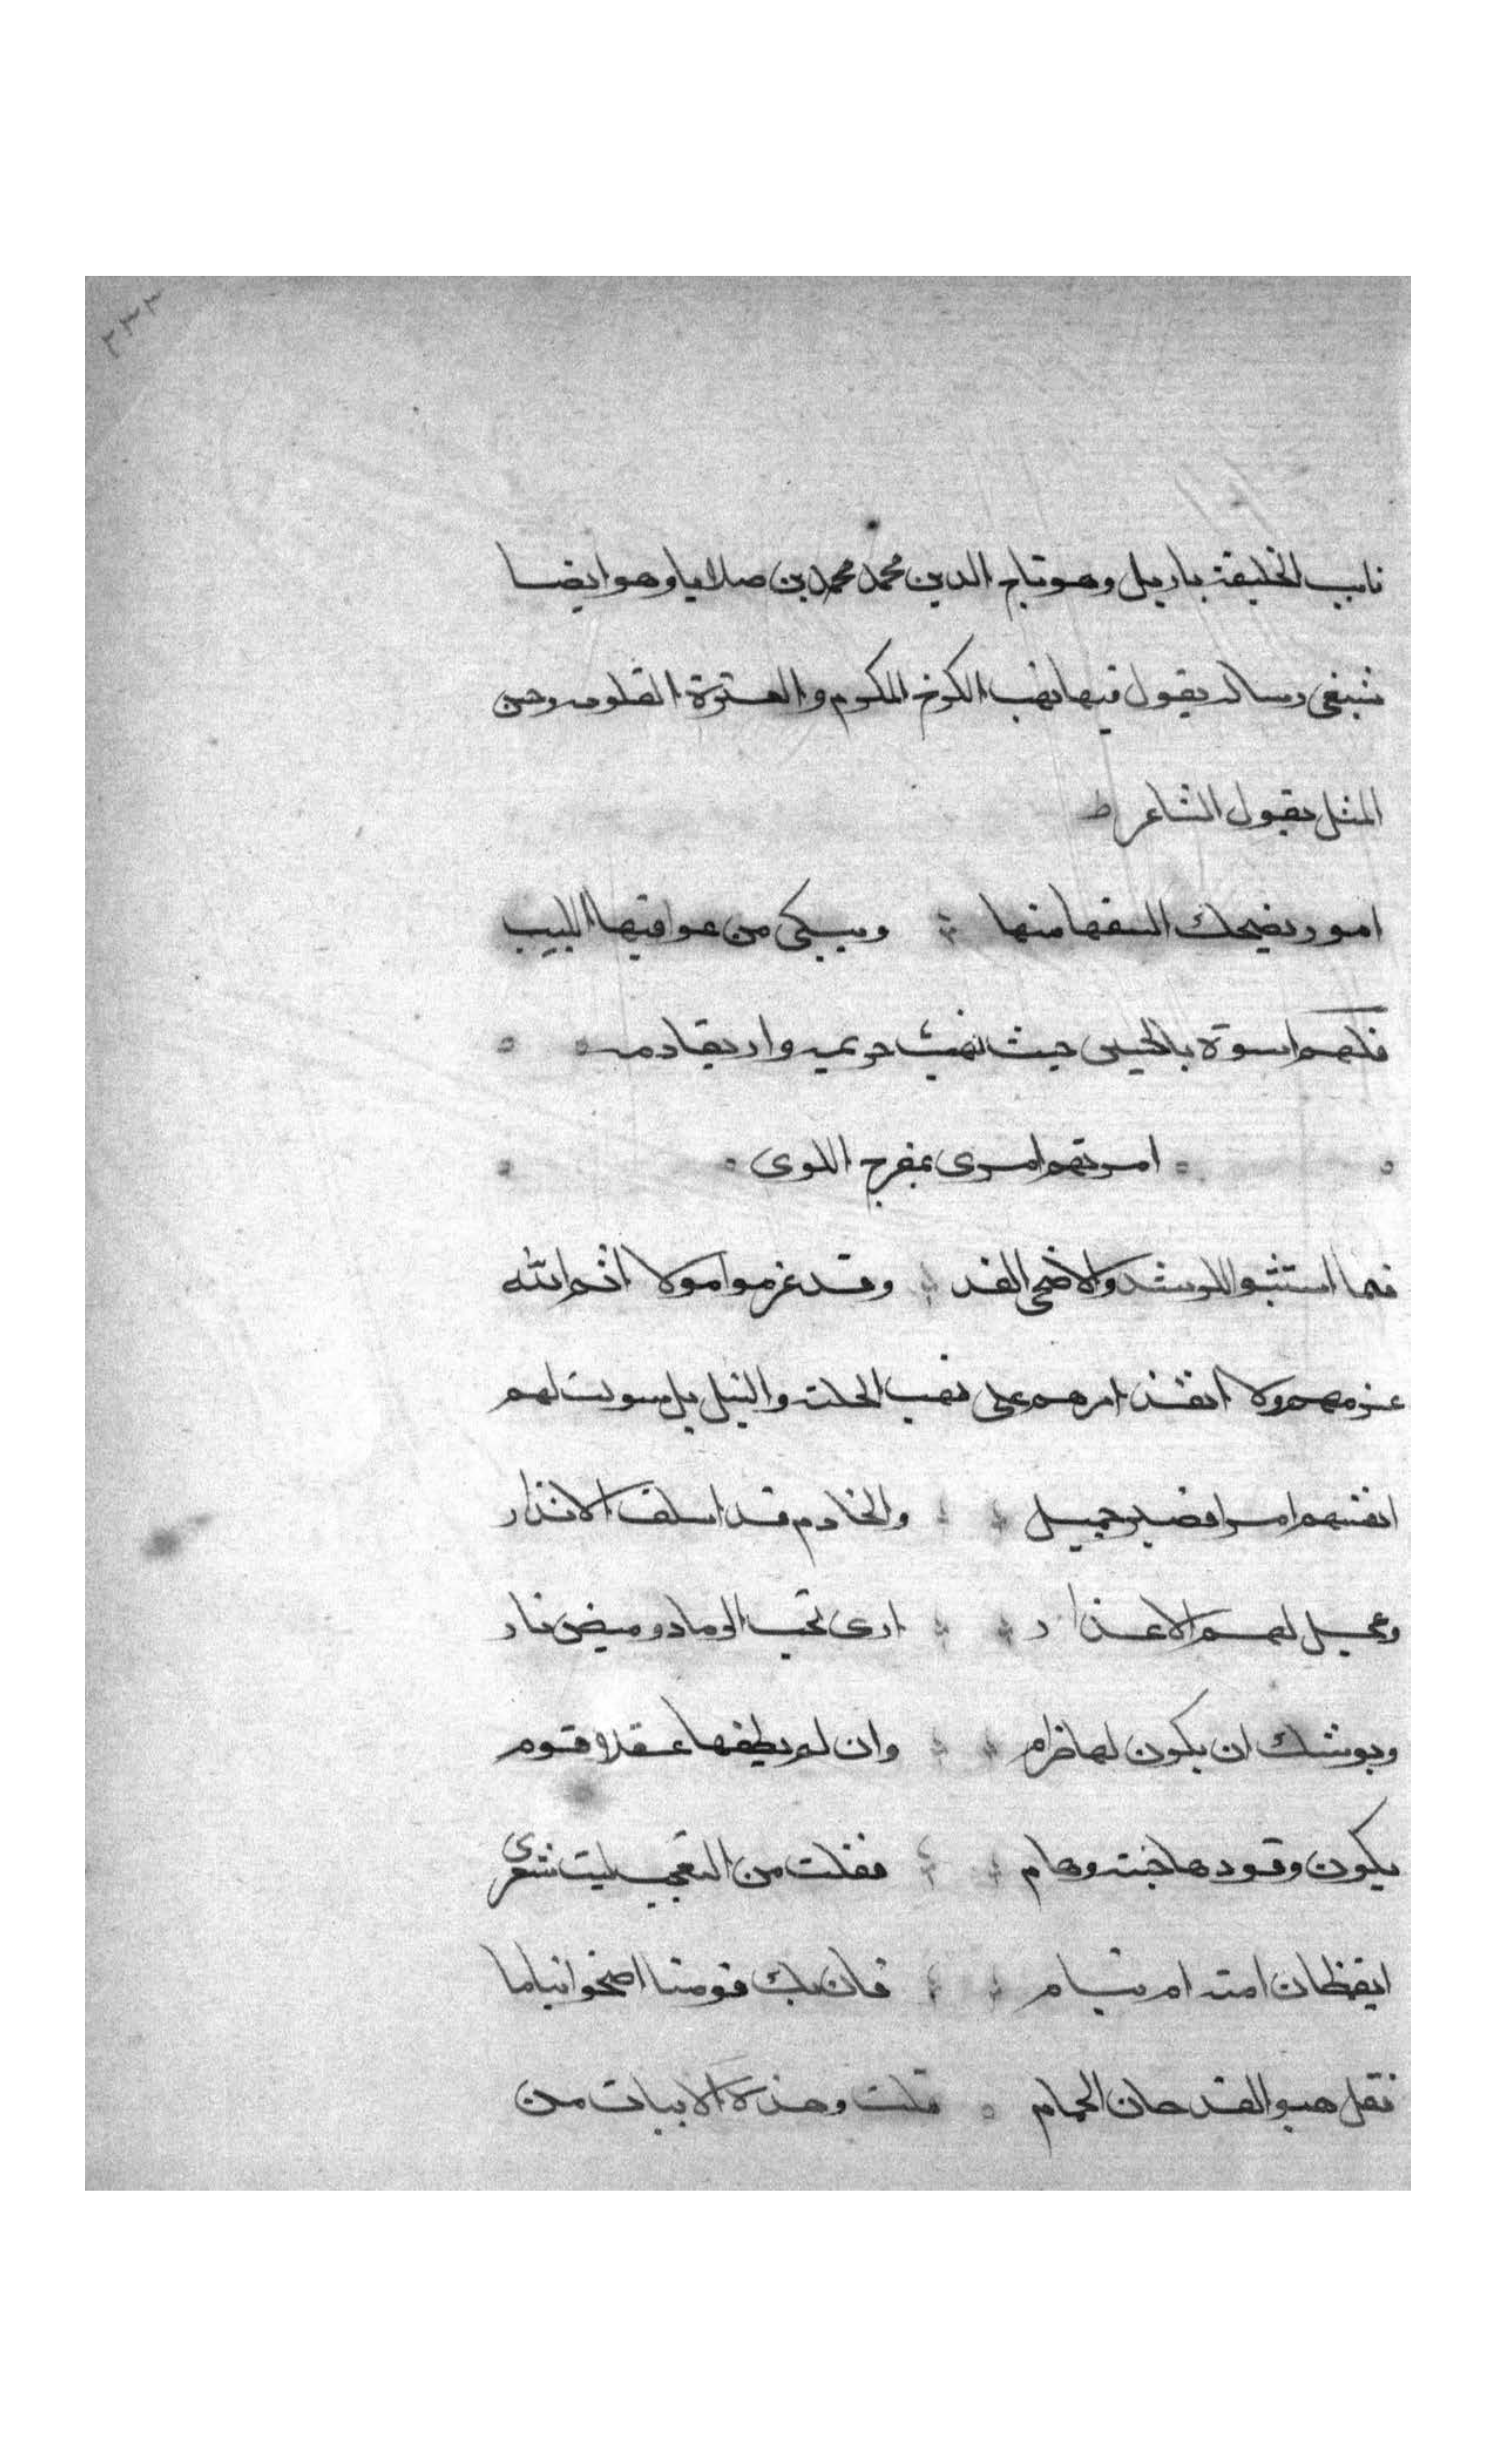 ٢٣٣
نايب الخليفة باربل وهو تاج الدين محمد محمد بن صلايا وهو ايضا
شيعى رساله يقول فيها نهب الكرخ المكرم والعترة العلويه وحسن
المثل بقول الشاعر
امور يضحك السفها منها ويبكى من عواقبها اللبيب
فلهم اسوة بالحسين حيث نهب حريمه واريق دمه
امرتهم امرى بمفرج اللوى
فما استثبوا الرشد الا ضحى الغد وقد عزموا مولا اتم الله
عزمهم ولا انفذ امرهم على نهب الحلة والنيل بل سولت لهم
انفسهم امرا فصبر جميل والخادم قد اسلف الانذار
وعجل لهم الاعذار ارى تحت الرماد وميض نار
ويوشك ان يكون لها ضرام وان لم يطفها عقلا قوم
يكون وقودها جثث وهام فقلت من التعجب ليت شعرى
ايقظان اميه ام نيام فان يك قومنا اضحوا نياما
فقل هبوا لقد حان الحمام قلت وهذه الابيات من